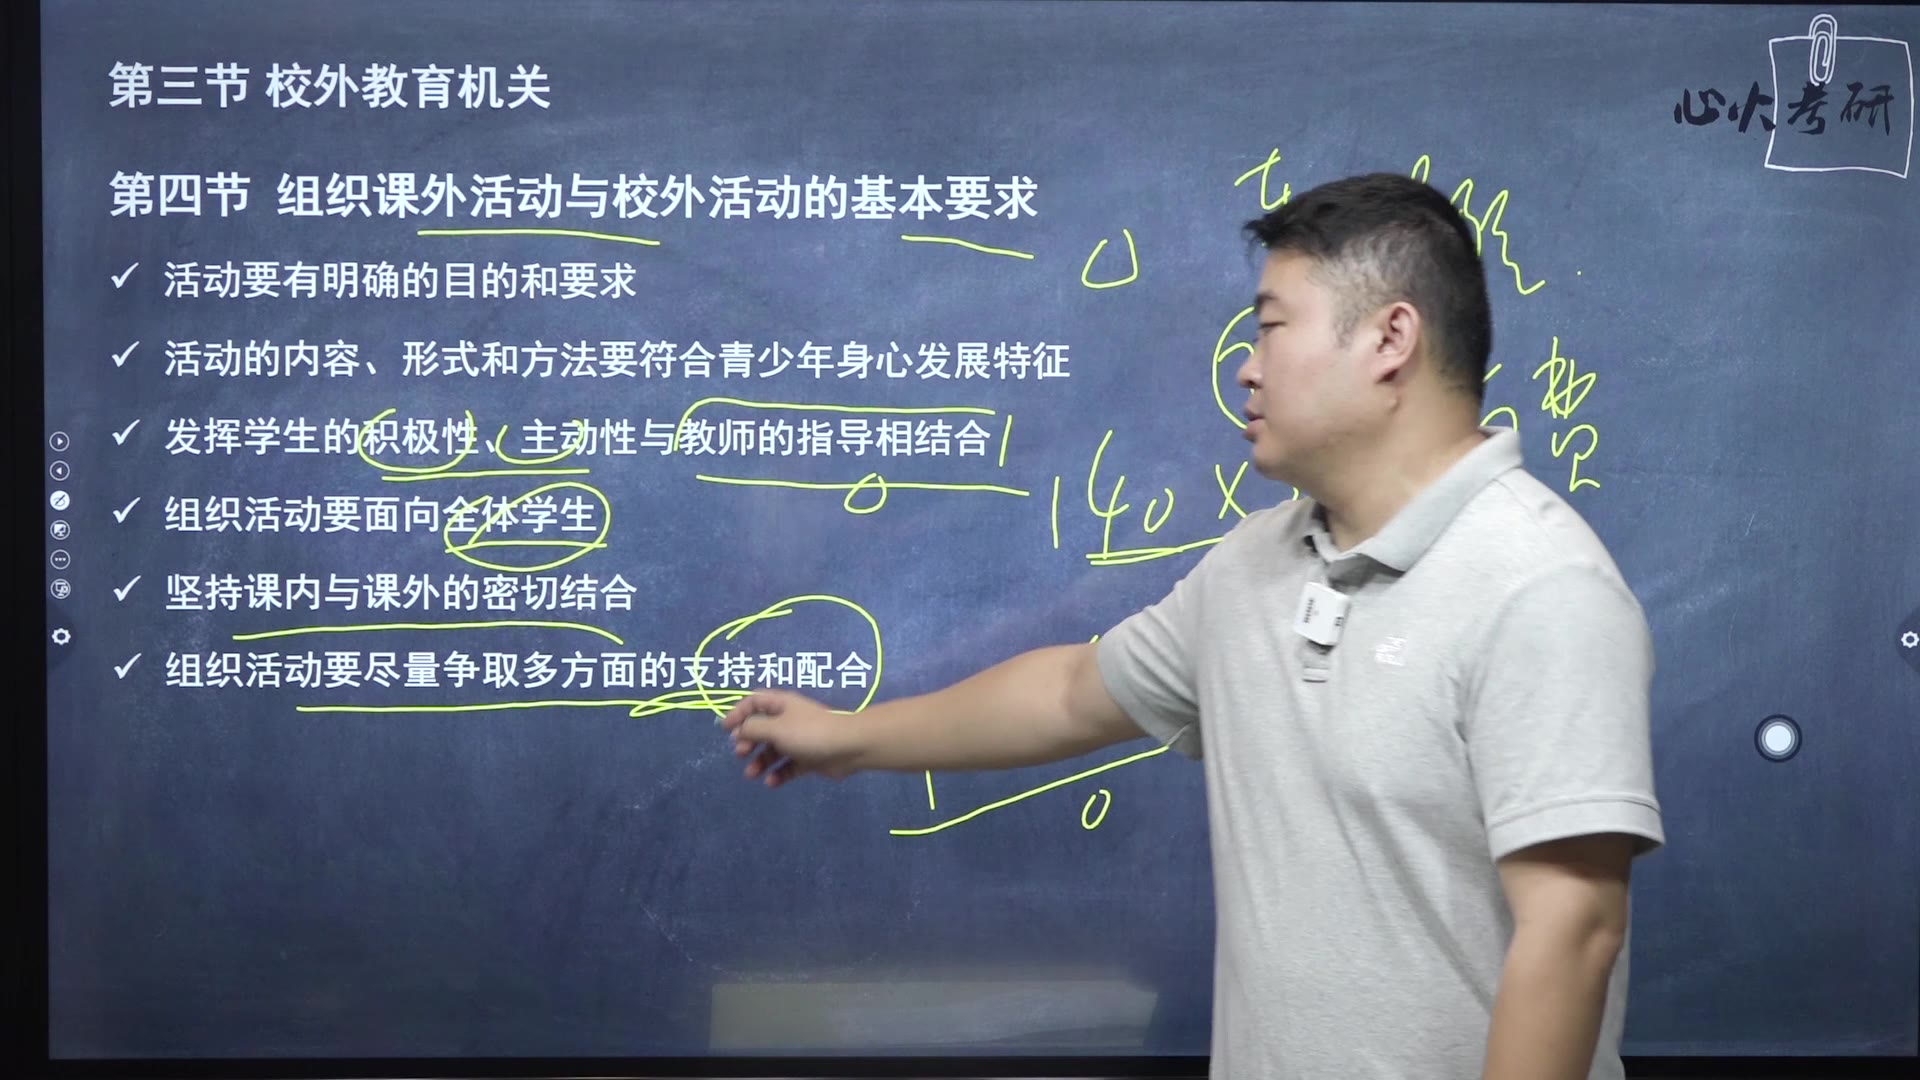 第三节 校外教育机关
心火考研
第四节 组织课外活动与校外活动的基本要求
✓ 活动要有明确的目的和要求
✓ 活动的内容、形式和方法要符合青少年身心发展特征
✓ 发挥学生的积极性、主动性与教师的指导相结合
✓ 组织活动要面向全体学生
140 X
✓ 坚持课内与课外的密切结合
✓ 组织活动要尽量争取多方面的支持和配合